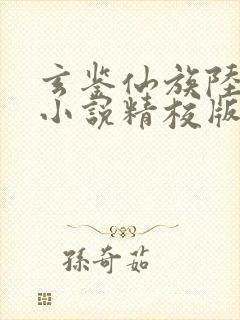 玄鉴仙族陸
小說精校版
孫奇茹